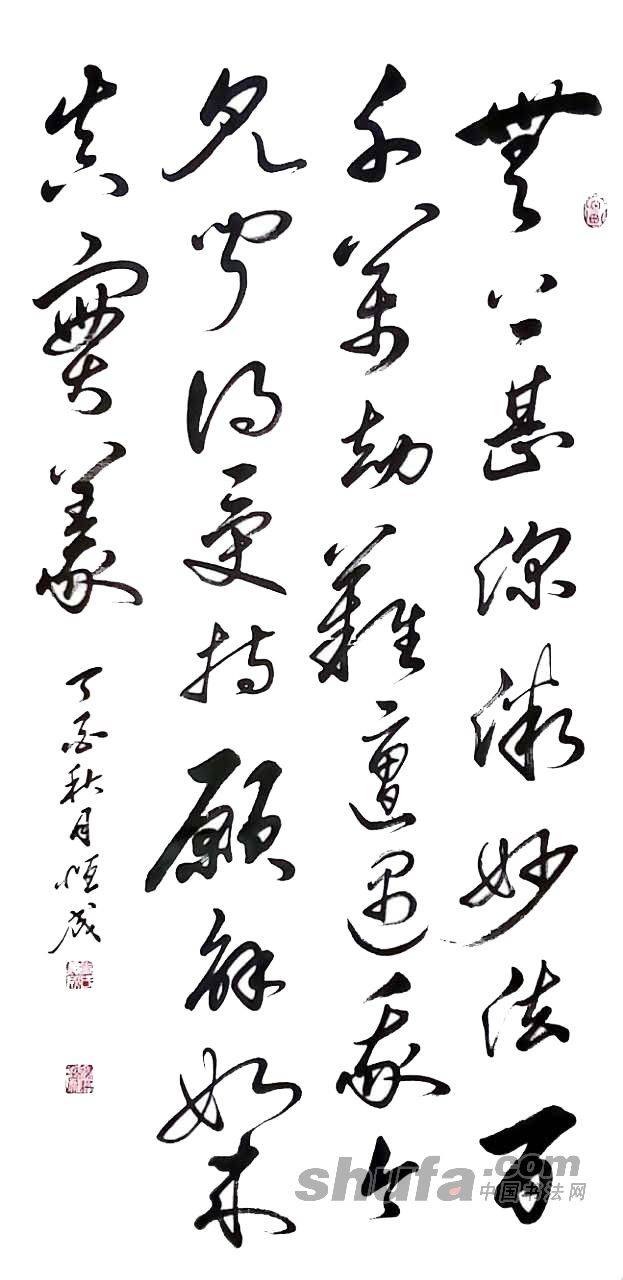 無上甚深微妙法百
千萬劫難遭遇我今
見聞得受持願解如來
真實義
丁酉秋月恒成
shufa.com
中国书法网